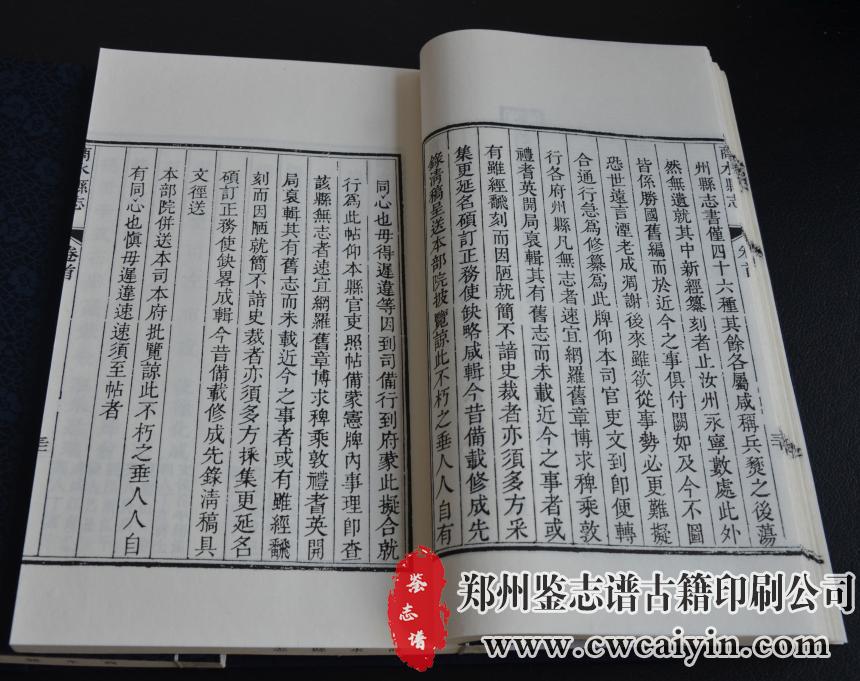 商水縣志
卷首
州縣志書僅四十六種其餘各屬咸稱兵燹之後蕩
然無遺就其中新經纂刻者止汝州永寧數處此外
皆係勝國舊編而於近今之事俱付闕如及今不圖
恐世遠言湮老成凋謝後來雖欲從事勢必更難擬
合通行急爲修纂爲此牌仰本司官吏文到卽便轉
行各府州縣凡無志者速宜網羅舊章博求稗乘敦
禮耆英開局裒輯其有舊志而未載近今之事者或
有雖經翻刻而因陋就簡不諳史裁者亦須多方采
集更延名碩訂正務使缺略咸輯今昔備載修成先
錄清稿呈送本部院披覽諒此不朽之垂人人自有
同心也毋得遲違等因到司備行到府蒙此擬合就
行爲此帖仰本縣官吏照帖備蒙憲牌內事理卽查
該縣無志者速宜網羅舊章博求稗乘敦禮耆英開
局裒輯其有舊志而未載近今之事者或有雖經翻
刻而因陋就簡不諳史裁者亦須多方採集更延名
碩訂正務使缺畧咸輯今昔備載修成先錄清稿具
文徑送
本部院併送本司本府批覽諒此不朽之垂人人自
有同心也愼毋遲違速速須至帖者
商水縣志
卷首
三
鉴志谱
郑州鉴志谱古籍印刷公司
www.cwcaiyin.com